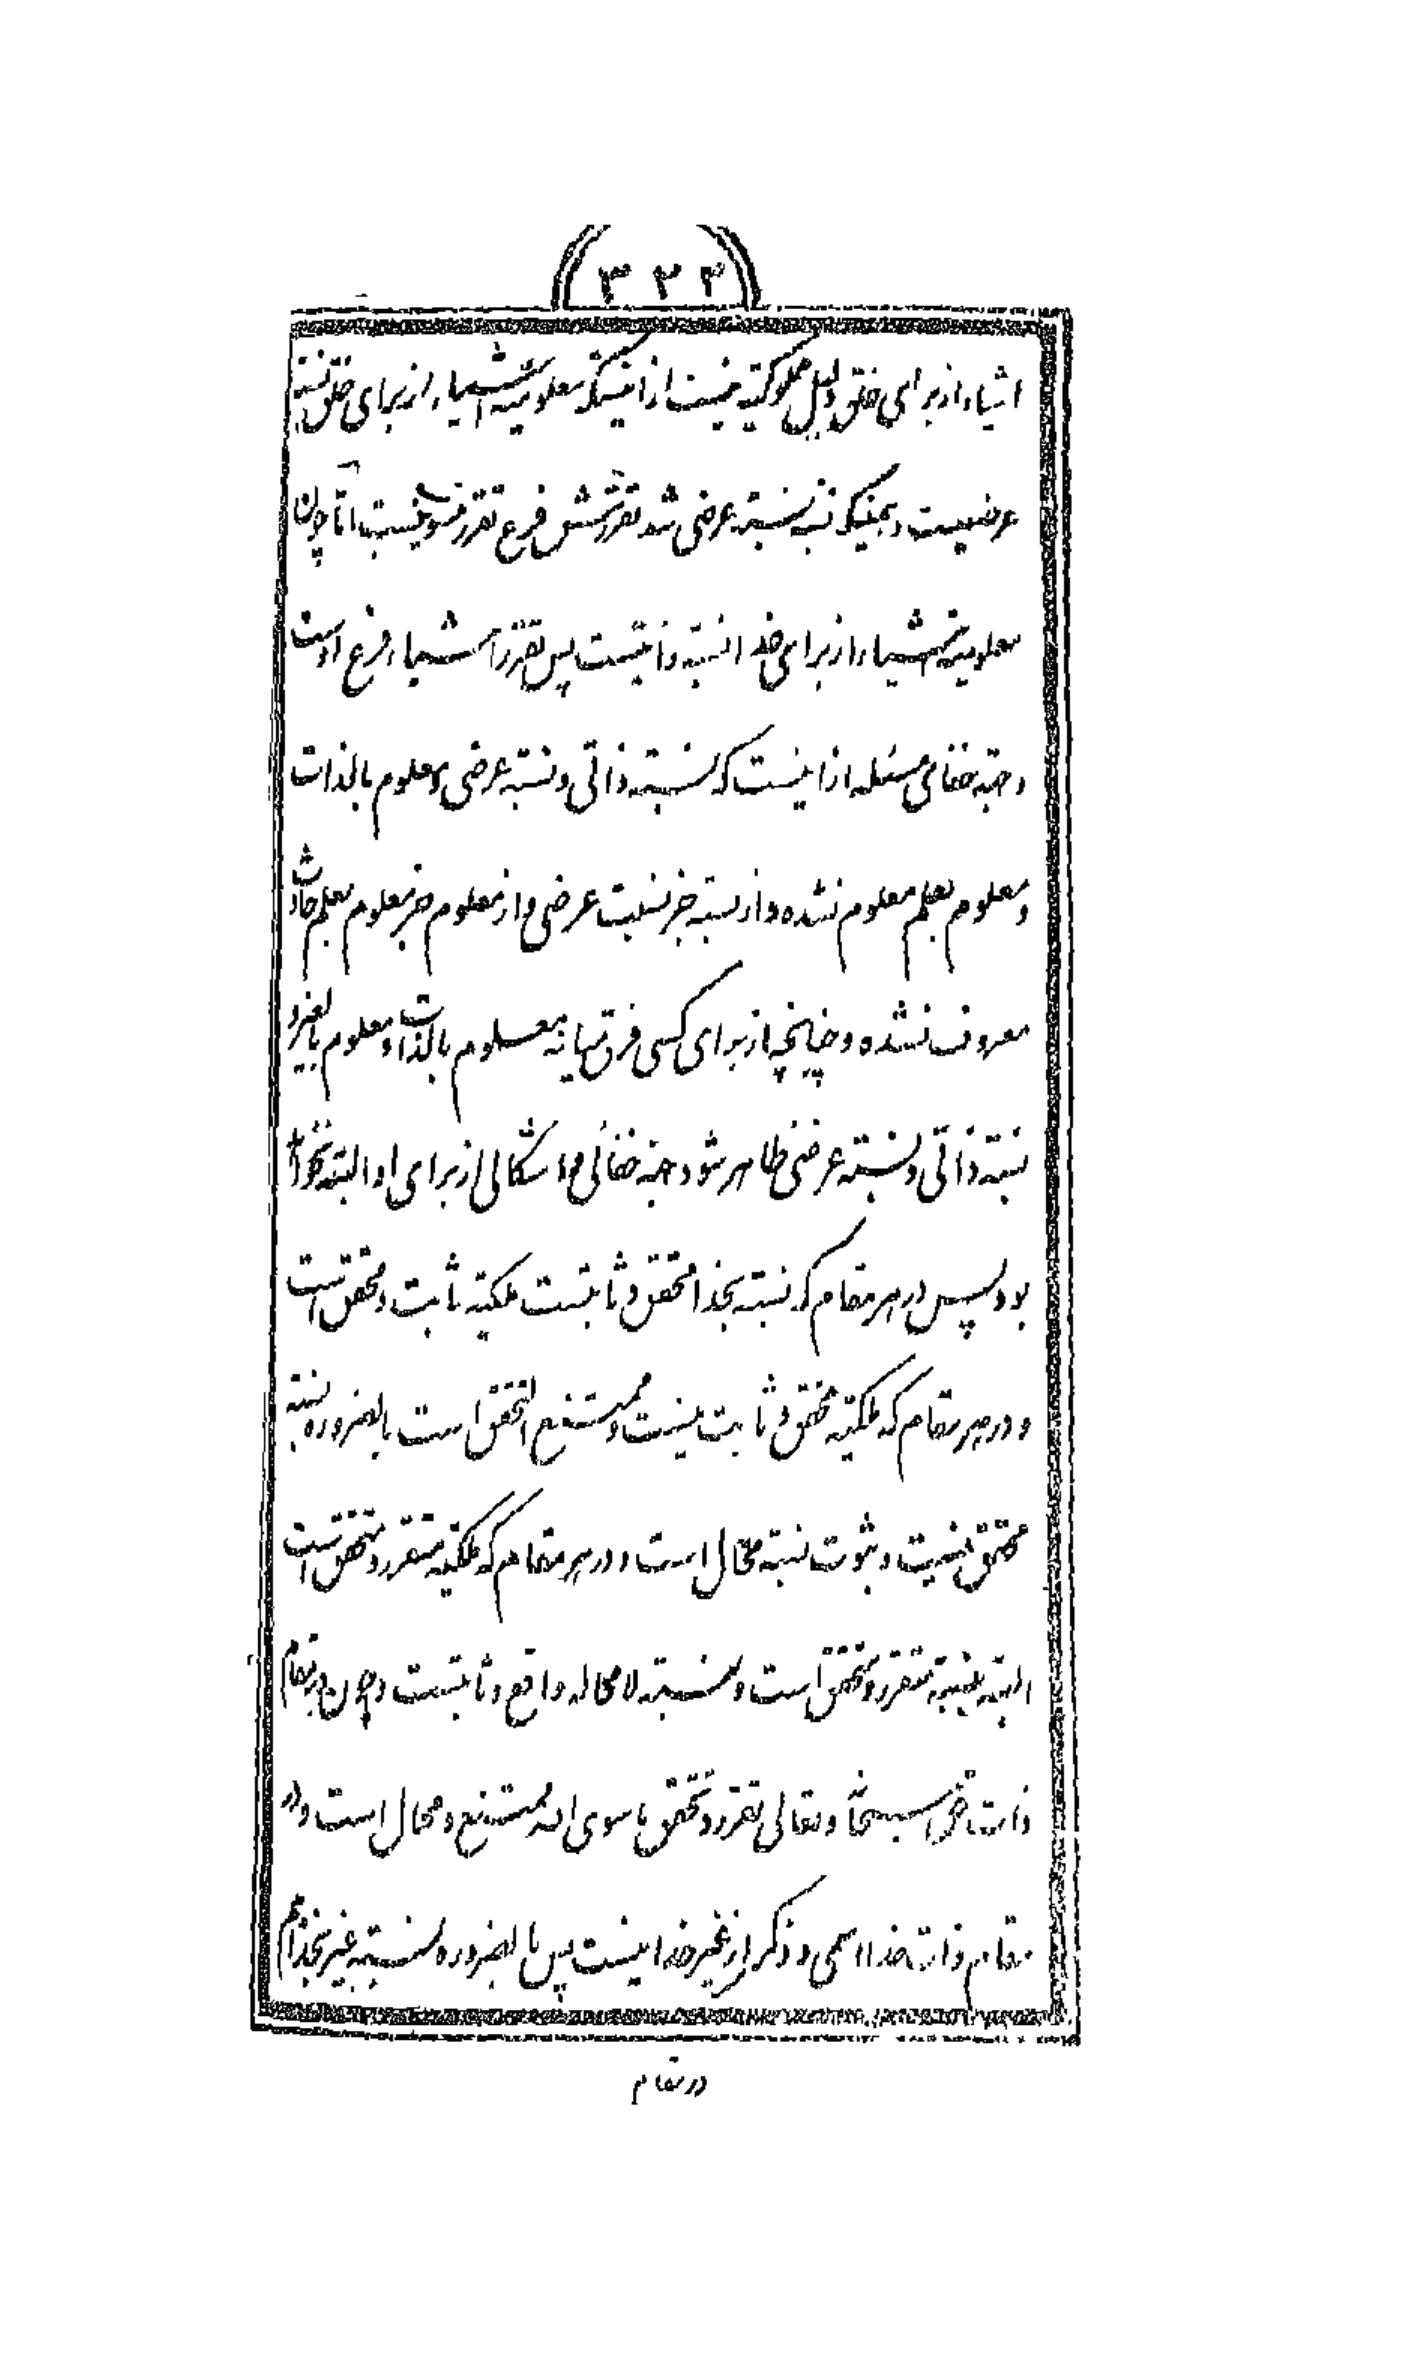 ۳۲۳
اشیاء از برای خلق دلیل مملوکیته نیست از اینست که معلومیته اشیاء از برای خلق نسبته
عرضیست و همینکه نسبته عرضی شد تقررش فرع تقرر منسوبست اما چون
معلومیته اشیاء از برای خدا نسبته ذاتیست پس تقرر اشیاء فرع اوست
و جهته خفای مسئله از اینست که نسبته ذاتی و نسبته عرضی و معلوم بالذات
و معلوم بعلم معلوم نشده و از نسبته جز نسبت عرضی و از معلوم جز معلوم بعلم حادث
معروف نشده و چنانچه از برای کسی فرق میانه معلوم بالذات و معلوم بالغیر و
نسبته ذاتی و نسبته عرضی ظاهر شود جهته خفائی و اشکالی از برای او البته نخواهد
بود پس در هر مقام که نسبته بخدا محقق و ثابتست ملکیته ثابت و محقق است
و در هر مقام که ملکیته محقق و ثابت نیست و ممتنع التحقق است بالضروره نسبته
محقق نیست و ثبوت نسبته محال است و در هر مقام که ملکیته متقرر و متحقق است
البته نسبته متقرر و متحقق است و نسبته لامحاله واقع و ثابتست و چون در مقام
ذات حق سبحانه و تعالی تقرر و تحقق ما سوی الله ممتنع و محال است و در
مقام ذات خدا اسمی و ذکری از غیر خدا نیست پس بالضروره نسبته غیر بخدا هم
در مقام